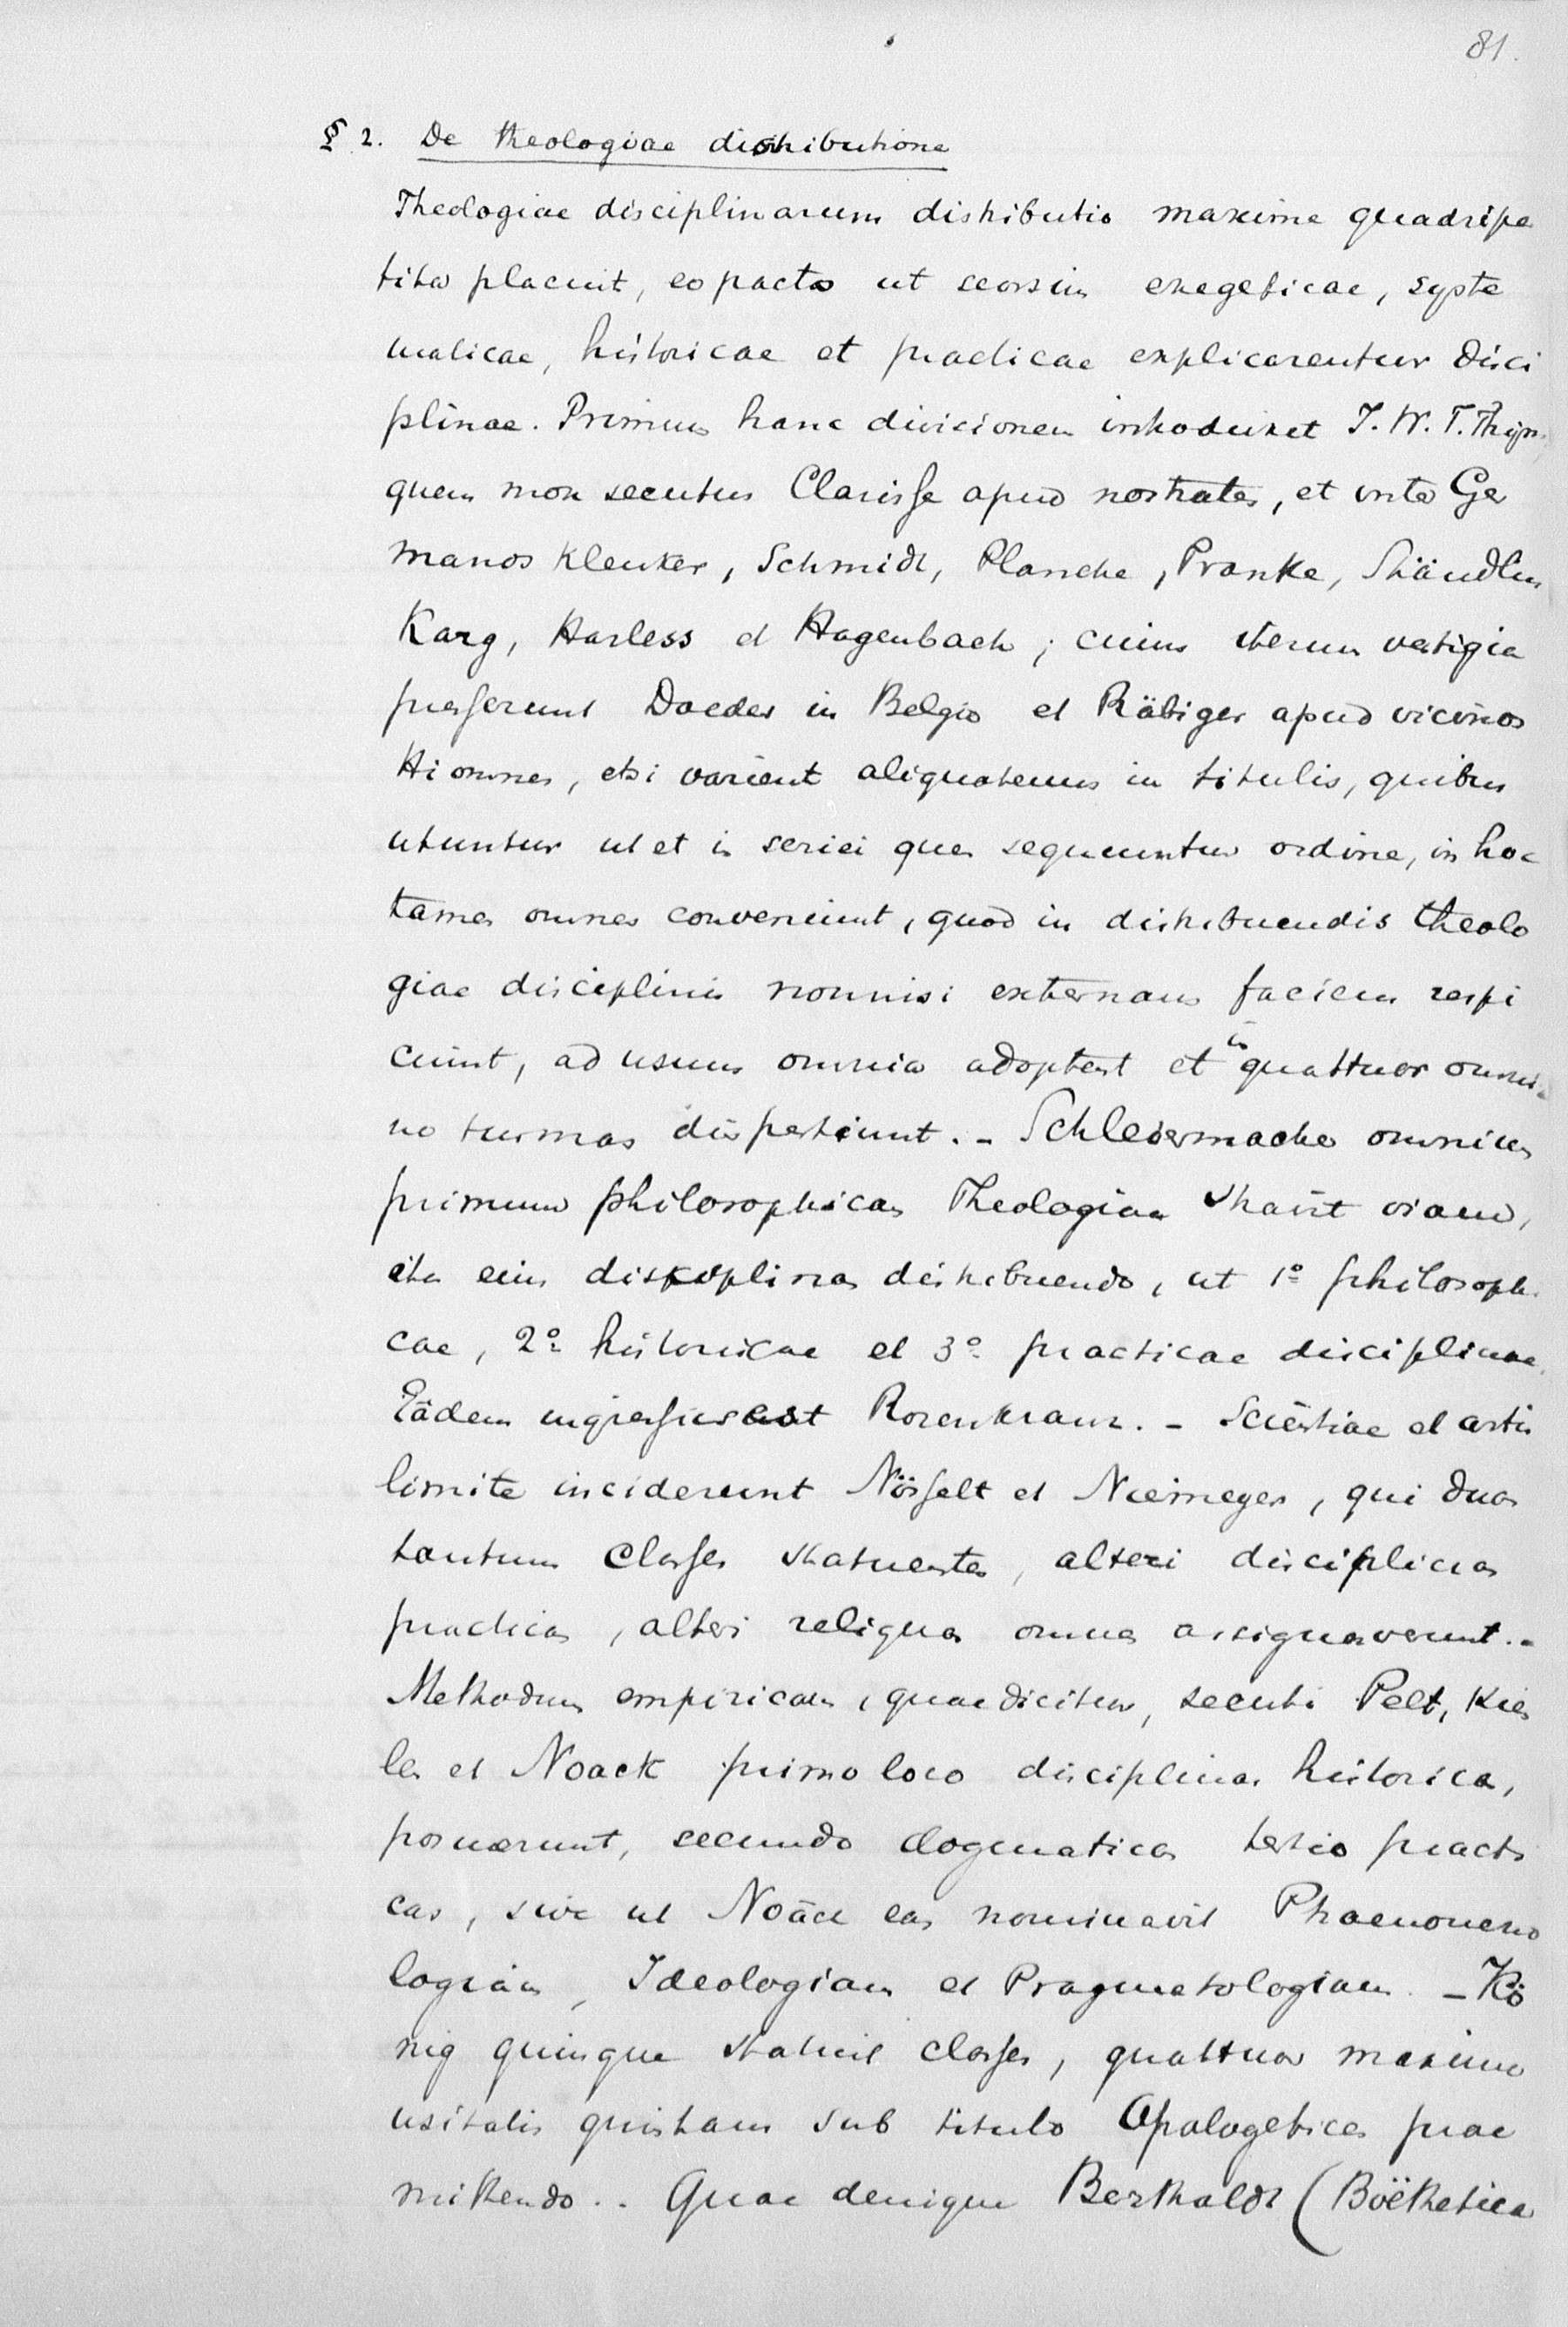 81.
§ 2. De theologiae distributione
Theologiae disciplinarum distributio maxime quadripar
tita placuit, eo pacto ut seorsim exegeticae, syste
maticae, historicae et practicae explicarentur disci
plinae. Primus hanc divisionem introduxit J. W. T. Thym,
quem mox secutus Clarisse apud nostrates, et inter Ger
manos Kleuker, Schmidt, Planche, Franke, Stäudlin
Karg, Harless et Hagenbach; cuius iterum vestigia
preserunt Doedes in Belgio et Räbiger apud vicinos
Hi omnes, etsi varient aliquatenus in titulis, quibus
utuntur ut et in seriei quem sequuntur ordine, in hoc
tamen omnes conveniunt, quod in distribuendis theolo
giae disciplinis nonnisi externam faciem respi
ciunt, ad usum omnia adoptent et in quattuor omni
no turmas dispertiunt. - Schleiermacher omnium
primum philosophicam Theologiam stravit viam,
ita eius disciplinas distribuendo, ut 1º philosoph.
cae, 2º historicae et 3º practicae disciplinae.
Eâdem ingressus est Rosenkranz. - Scientiae et artis
limite inciderunt Nösselt et Niemeyer, qui duas
tantum classes statuentes, alteri disciplinas
practicas, alteri reliquas omnes assignaverunt. -
Methodum empiricam, quae dicitur, secuti Pelt, Kien
len et Noack primo loco disciplinas historicas,
posuerunt, secundo dogmaticas tertio practi
cas, sive ut Noäck eas nominavit Phaenomeno
logiam, Ideologiam et Pragmatologiam. - Kö
nig quinque statuit classes, quattuor maxime
usitatis quintam sub titulo Apologetices prae
mittendo. - Quae denique Berthaldt (Böëthetica